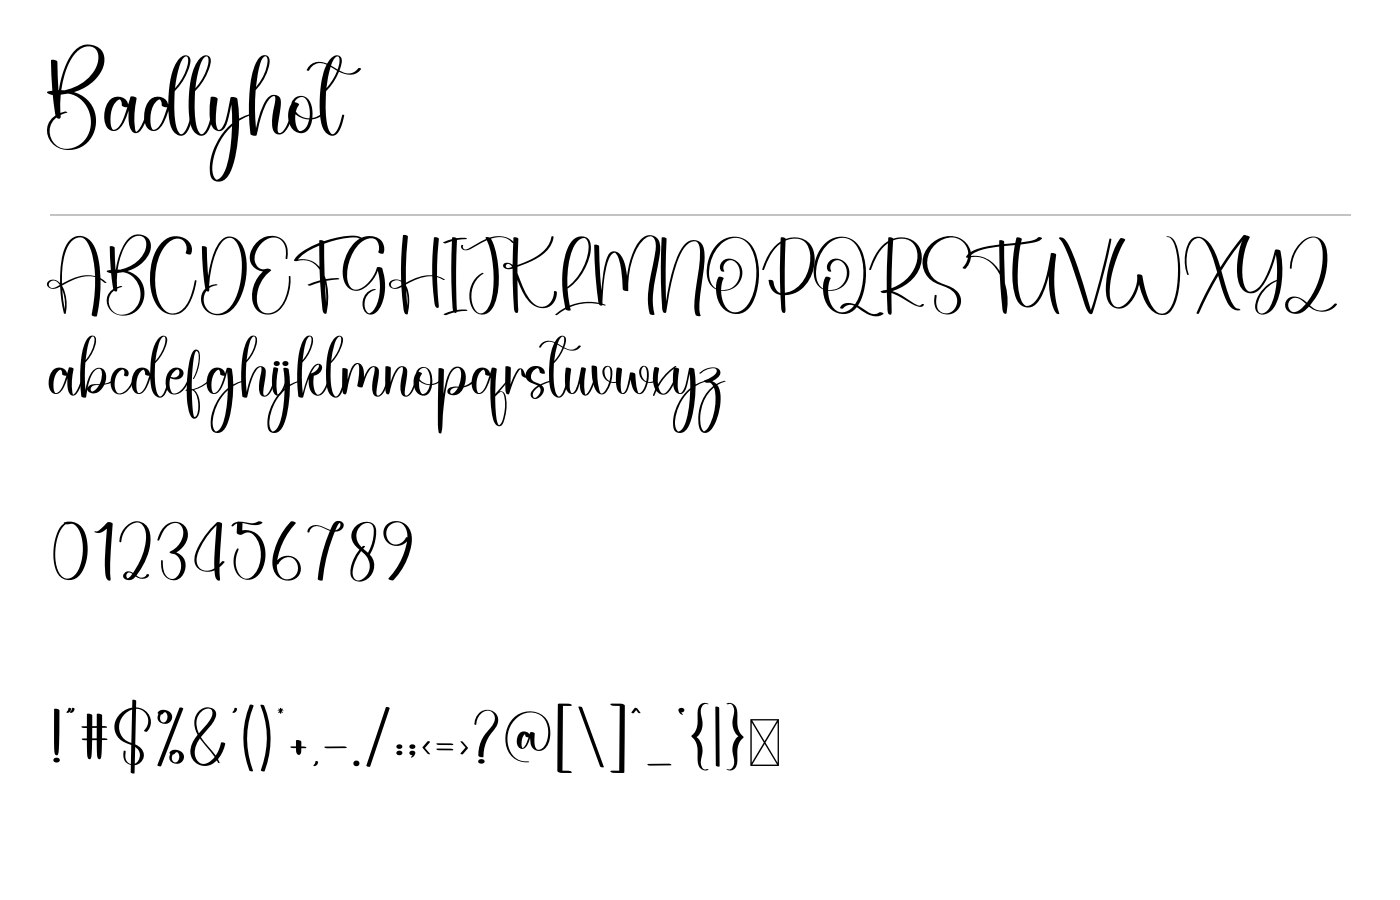 Badlyhot
ABCDEFGHIJKLMNOPQRSTUVWXYZ
abcdefghijklmnopqrstuvwxyz
0123456789
!"#$%&'()*+,-./:;<=>?@[\]^_`{|}